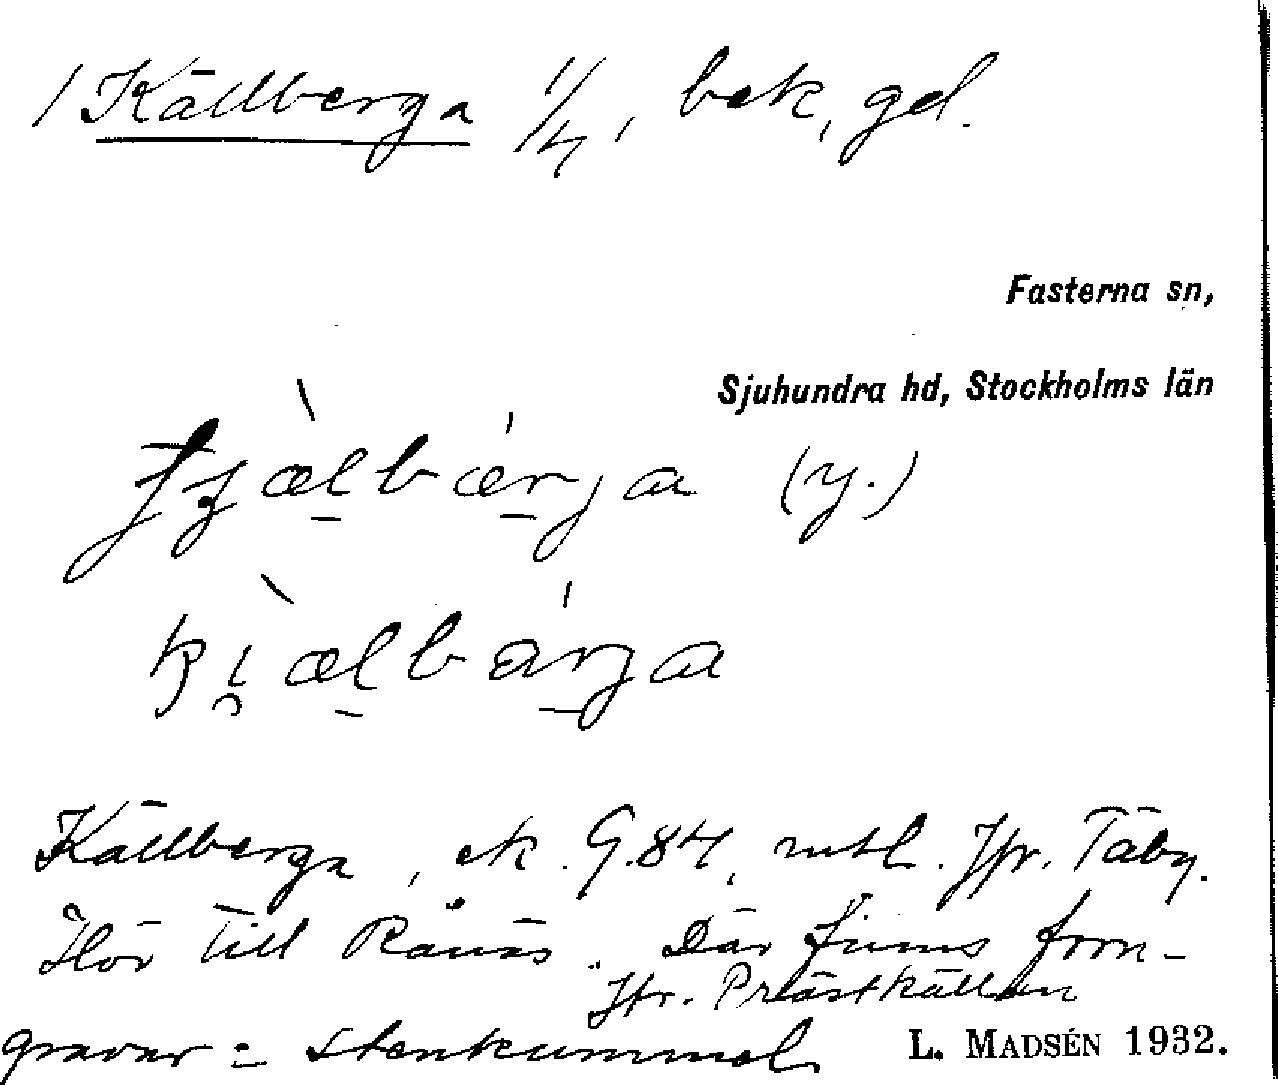 1 Källberga 1/4, bek, gel.
Fasterna sn,
Sjuhundra hd, Stockholms län
(y.)
Källberga, ek. G.84, mtl. Jfr. Täby.
Hör till Rånäs. Där finns forn-
Jfr. Prästkällan
gravar = stenkummel
L. MADSÉN 1932.